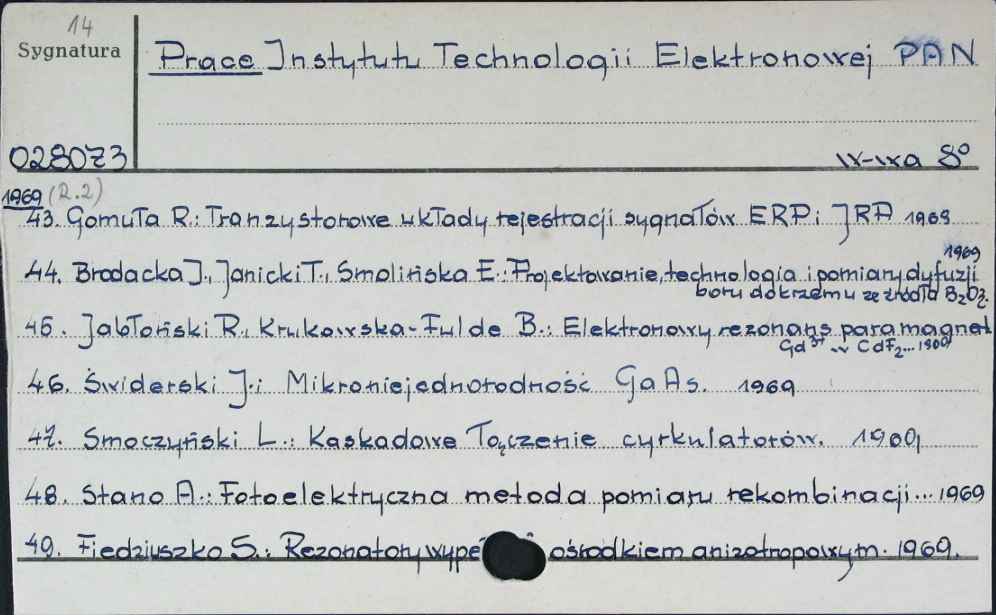 14
Sygnatura
Prace Instytutu Technologii Elektronowej PAN
028073
IX-IXa 8°
1969 (R.2)
43. Gomuła R.: Tranzystorowe układy rejestracji sygnałów ERP i JRP 1969
1969
44. Brodacka J., Janicki T., Smolińska E.: Projektowanie, technologia i pomiary dyfuzji
boru do krzemu ze źródła B₂O₃.
45. Jabłoński R., Krukowska-Fulde B.: Elektronowy rezonans paramagnet
Gd³⁺ w CdF₂...1969
46. Świderski J.: Mikroniejednorodność GaAs. 1969
47. Smoczyński L.: Kaskadowe łączenie cyrkulatorów. 1969
48. Stano A.: Fotoelektryczna metoda pomiaru rekombinacji... 1969
49. Fiedziuszko S.: Rezonatory ośrodkiem anizotropowym. 1969.